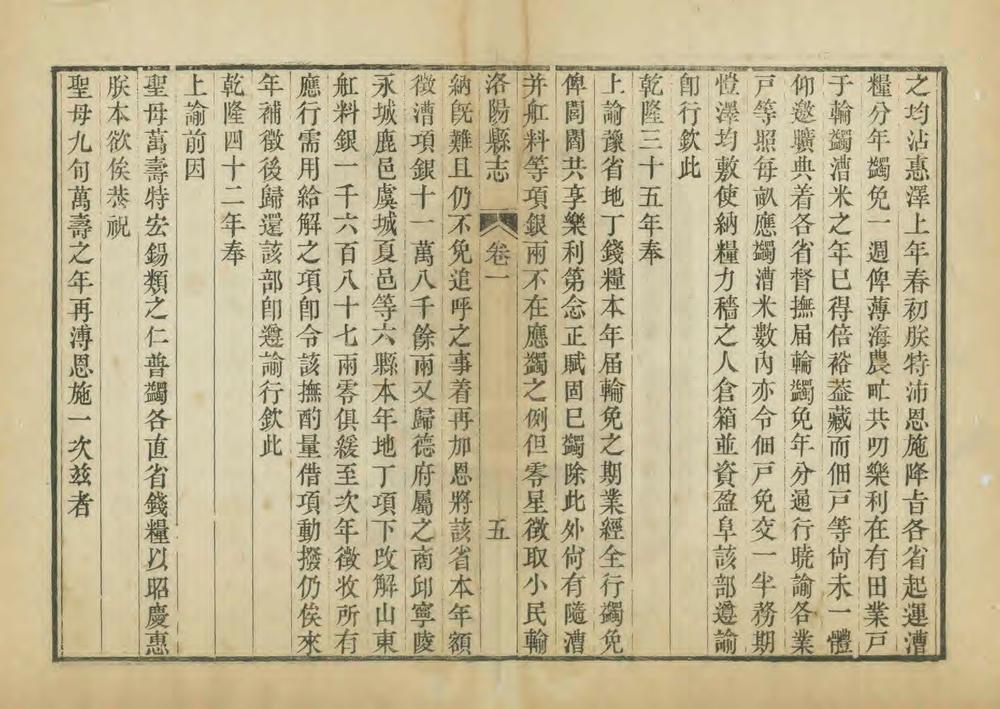 之均沾惠澤上年春初朕特沛恩施降旨各省起運漕
糧分年蠲免一週俾薄海農甿共叨樂利在有田業戸
于輪蠲漕米之年已得倍裕葢藏而佃戸等尙未一體
仰邀曠典着各省督撫届輪蠲免年分通行曉諭各業
戸等照每畝應蠲漕米數內亦令佃戸免交一半務期
愷澤均敷使納糧力穡之人倉箱並資盈阜該部遵諭
卽行欽此
乾隆三十五年奉
上諭豫省地丁錢糧本年届輪免之期業經全行蠲免
俾閭閻共享樂利第念正賦固已蠲除此外尙有隨漕
并舡料等項銀兩不在應蠲之例但零星徴取小民輸
洛陽縣志 卷一 五
納旣難且仍不免追呼之事着再加恩將該省本年額
徴漕項銀十一萬八千餘兩又歸德府屬之商邱寧陵
永城鹿邑虞城夏邑等六縣本年地丁項下改解山東
舡料銀一千六百八十七兩零俱緩至次年徴收所有
應行需用給解之項卽令該撫酌量借項動撥仍俟來
年補徴後歸還該部卽遵諭行欽此
乾隆四十二年奉
上諭前因
聖母萬壽特宏錫類之仁普蠲各直省錢糧以昭慶惠
朕本欲俟恭祝
聖母九旬萬壽之年再溥恩施一次茲者